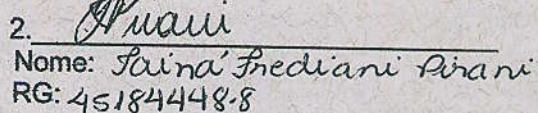 2. Pirani
Nome: Tainá Frediani Pirani
RG: 45184448-8